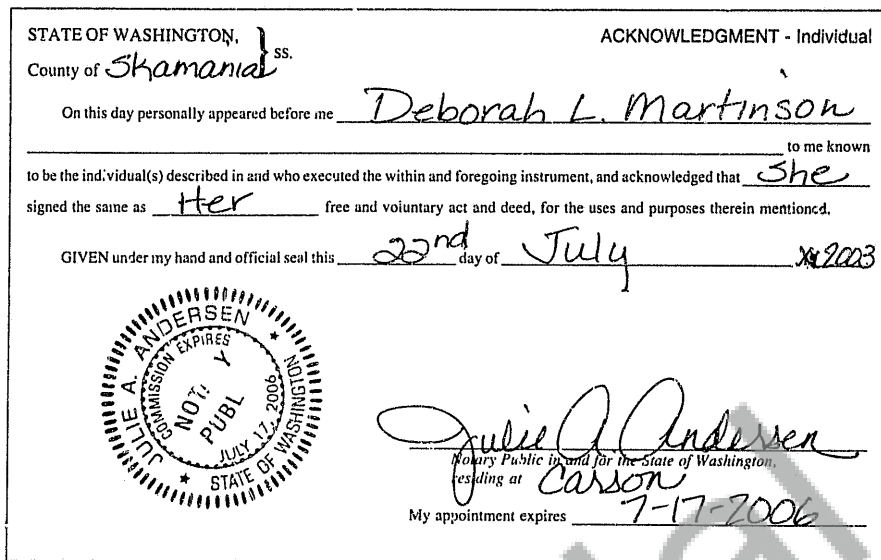 STATE OF WASHINGTON,
County of Skamania } ss.
ACKNOWLEDGMENT - Individual
On this day personally appeared before me Deborah L. Martinson
to me known
to be the individual(s) described in and who executed the within and foregoing instrument, and acknowledged that She
signed the same as Her free and voluntary act and deed, for the uses and purposes therein mentioned.
GIVEN under my hand and official seal this 22nd day of July 2003
JULIE A. ANDERSEN
COMMISSION EXPIRES
NOT Y
PUBL
JULY 17, 2006
STATE OF WASHINGTON
Julie A Andersen
Notary Public in and for the State of Washington,
residing at Carson
My appointment expires 7-17-2006